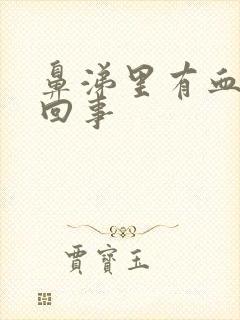 鼻涕里有血
回事
賈寶玉